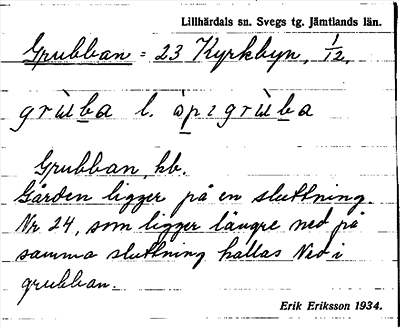 Lillhärdals sn. Svegs tg. Jämtlands län.
Grubban = 23 Kyrkbyn, 1/12,
grùba l. àpı grùba
Grubban, kb.
Gården ligger på en sluttning.
Nr 24, som ligger längre ned på
samma sluttning kallas Ned i
grubban.
Erik Eriksson 1934.